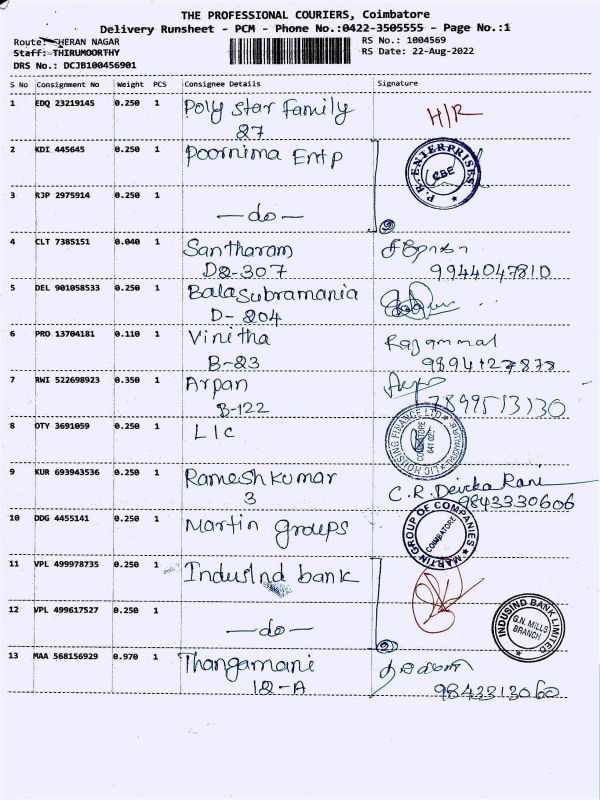 THE PROFESSIONAL COURIERS, Coimbatore
Delivery Runsheet - PCM - Phone No.:0422-3505555 - Page No.:1
Route: CHERAN NAGAR
RS No.: 1004569
Staff: THIRUMOORTHY
RS Date: 22-Aug-2022
DRS No.: DCJB100456901
S No Consignment No Weight PCS Consignee Details Signature
1 EDQ 23219145 0.250 1 Poly star Family H/R
27
2 KDI 445645 0.250 1 Poornima Entp
P.R. ENTERPRISES CBE
3 RJP 2975914 0.250 1
—do— 2
4 CLT 7385151 0.040 1 Santharam
D2-307 9944047810
5 DEL 901058533 0.250 1 Balasubramania
D-204
6 PRO 13704181 0.110 1 Vinitha Rajammal
B-23 9894127878
7 RWI 522698923 0.350 1 Arpan
B-122 7899513130
8 OTY 3691059 0.250 1 LIC
LIC HOUSING FINANCE LTD COIMBATORE
9 KUR 693943536 0.250 1 Rameshkumar C.R. Devika Rani
3 9843330606
10 DDG 4455141 0.250 1 Martin groups
MARTIN GROUP OF COMPANIES COIMBATORE
11 VPL 499978735 0.250 1 IndusInd bank
12 VPL 499617527 0.250 1
—do— 2
INDUSIND BANK LIMITED G.N. MILLS BRANCH
13 MAA 568156929 0.970 1 Thangamani
12-A 9843313060